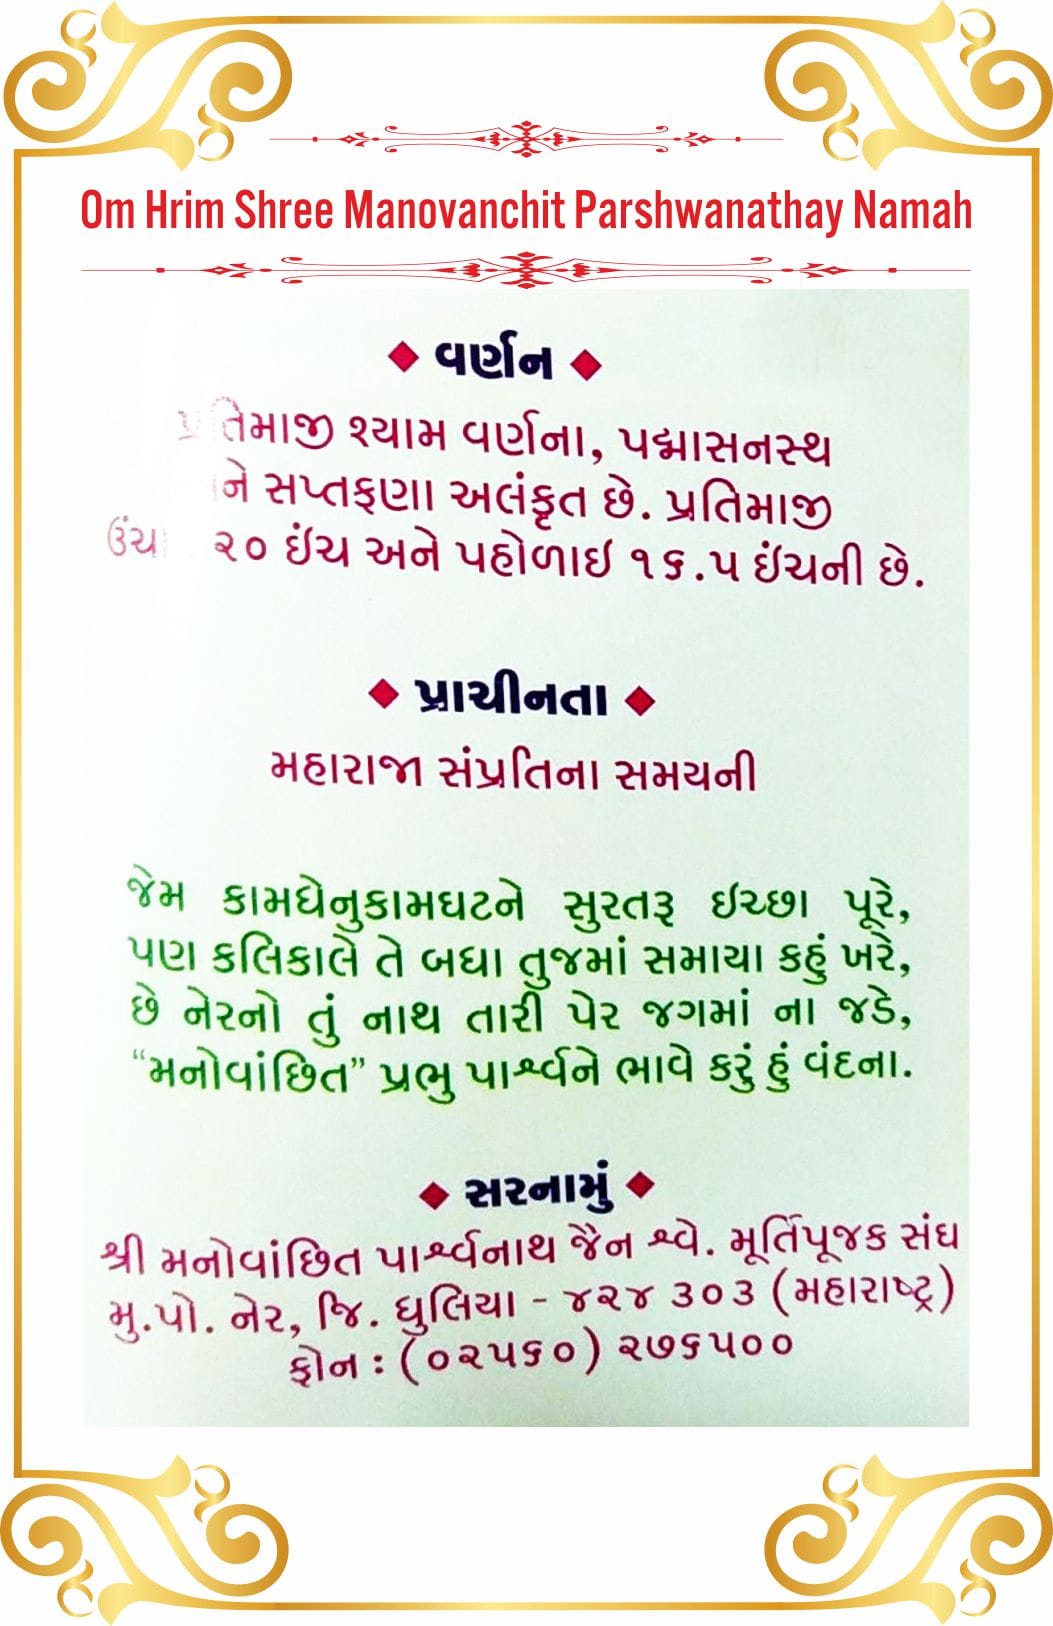 Om Hrim Shree Manovanchit Parshwanathay Namah
વર્ણન
પ્રતિમાજી શ્યામ વર્ણના, પદ્માસનસ્થ
સપ્તફણા અલંકૃત છે. પ્રતિમાજી
૨૦ ઇંચ અને પહોળાઇ ૧૬.૫ ઇંચની છે.
પ્રાચીનતા
મહારાજા સંપ્રતિના સમયની
જેમ કામધેનુકામઘટને સુરતરૂ ઇચ્છા પૂરે,
પણ કલિકાલે તે બધા તુજમાં સમાયા કહું ખરે,
છે નેરનો તું નાથ તારી પેર જગમાં ના જડે,
“મનોવાંછિત” પ્રભુ પાર્શ્વને ભાવે કરું હું વંદના.
સરનામું
શ્રી મનોવાંછિત પાર્શ્વનાથ જૈન શ્વે. મૂર્તિપૂજક સંઘ
મુ.પો. નેર, જિ. ધુલિયા - ૪૨૪ ૩૦૩ (મહારાષ્ટ્ર)
ફોન : (૦૨૫૬૦) ૨૭૬૫૦૦